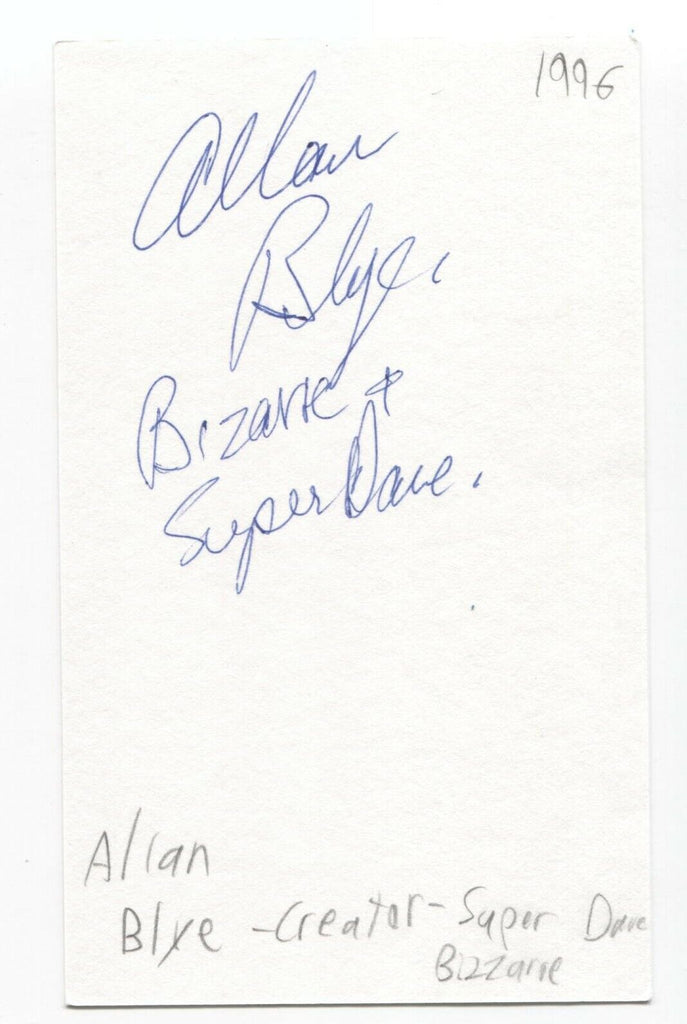 1996
Allan
Blye.
Bizarre +
Super Dave.
Allan
Blye - Creator - Super Dave
Bizzarre